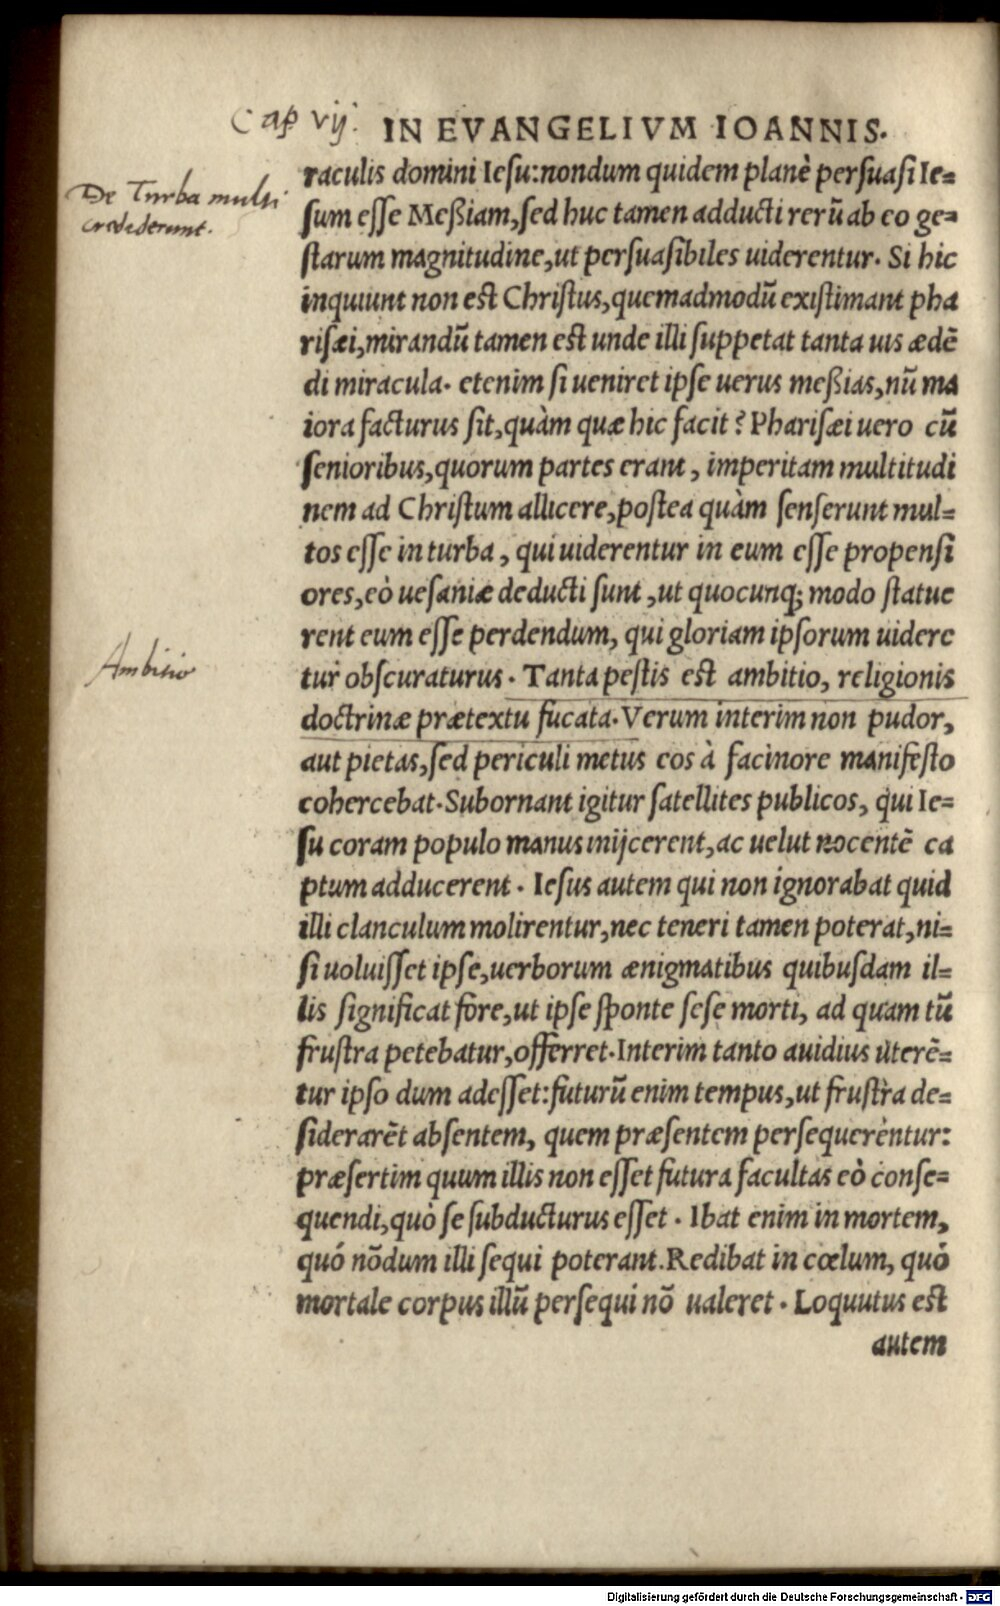 Cap vij. IN EVANGELIVM IOANNIS.
De Turba multi
crediderunt.
raculis domini Iesu:nondum quidem planè persuasi Ie=
sum esse Meßiam,sed huc tamen adducti rerū ab eo ge=
starum magnitudine,ut persuasibiles uiderentur. Si hic
inquiunt non est Christus,quemadmodū existimant pha
risæi,mirandū tamen est unde illi suppetat tanta uis ædē
di miracula. etenim si ueniret ipse uerus meßias,nū ma
iora facturus sit,quàm quæ hic facit? Pharisæi uero cū
senioribus,quorum partes erant, imperitam multitudi
nem ad Christum allicere,postea quàm senserunt mul=
tos esse in turba, qui uiderentur in eum esse propensi
ores,eò uesaniæ deducti sunt,ut quocunq; modo statue
rent eum esse perdendum, qui gloriam ipsorum uidere
Ambitio
tur obscuraturus. Tanta pestis est ambitio, religionis
doctrinæ prætextu fucata.Verum interim non pudor,
aut pietas,sed periculi metus eos à facinore manifesto
cohercebat.Subornant igitur satellites publicos, qui Ie=
su coram populo manus inijcerent,ac uelut nocentē ca
ptum adducerent. Iesus autem qui non ignorabat quid
illi clanculum molirentur,nec teneri tamen poterat,ni=
si uoluisset ipse,uerborum ænigmatibus quibusdam il=
lis significat fore,ut ipse sponte sese morti, ad quam tū
frustra petebatur,offerret.Interim tanto auidius uterē=
tur ipso dum adesset:futurū enim tempus,ut frustra de=
siderarēt absentem, quem præsentem persequerentur:
præsertim quum illis non esset futura facultas eò conse=
quendi,quò se subducturus esset. Ibat enim in mortem,
quó nōdum illi sequi poterant.Redibat in cœlum, quò
mortale corpus illū persequi nō ualeret. Loquutus est
autem
Digitalisierung gefördert durch die Deutsche Forschungsgemeinschaft - DFG